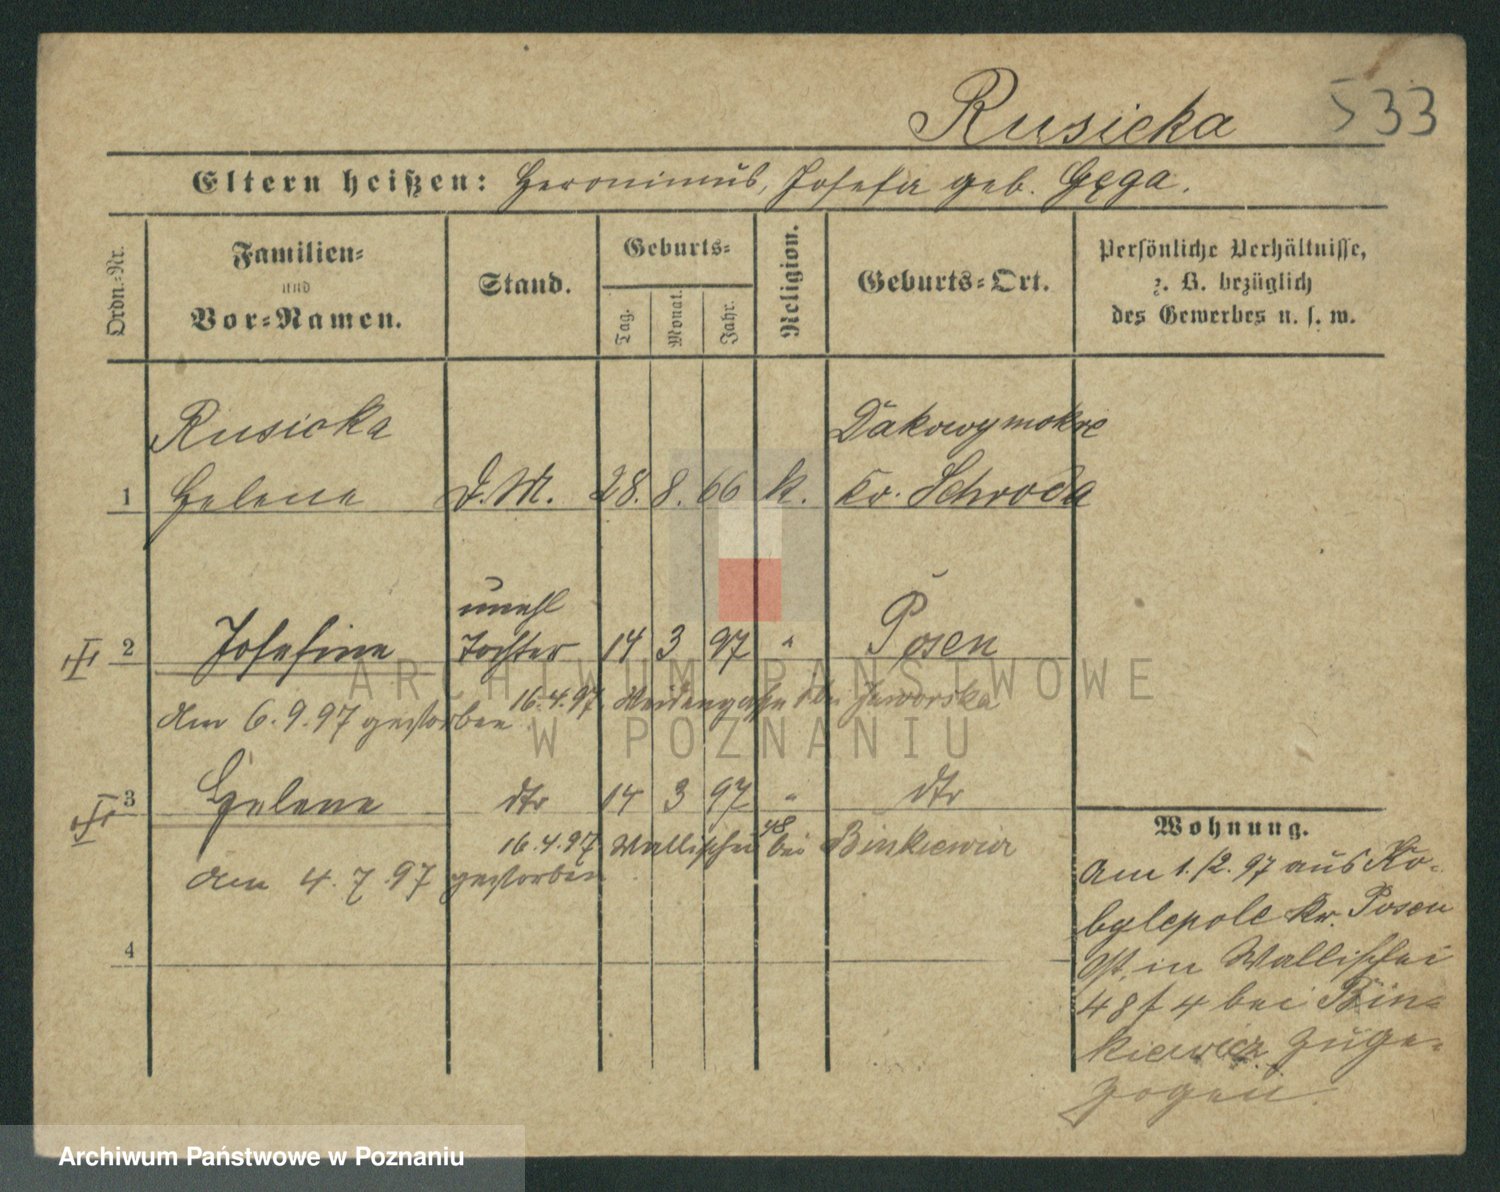 Rusicka 533
Eltern heißen: Hieronimus, Josefa geb. Gęga.
Ordn.-Nr.
Familien-
und
Vor-Namen.
Stand.
Geburts-
Tag.
Monat.
Jahr.
Religion.
Geburts-Ort.
Persönliche Verhältnisse,
z. B. bezüglich
des Gewerbes u. s. w.
Rusicka Dakowymokre
1 Helene D. M. 28. 8. 66 k. Kr. Schroda
unehl
2 Josefine Tochter 14 3 97 " Posen
16.4.97. Weidengasse bei Jaworska
am 6.9.97 gestorben
3 Helene dto 14 3 97 " dto
16.4.97 Wallischei 48 bei Binkiewicz
am 4.7.97 gestorben
4
Wohnung.
Am 1./2.97 aus Ko-
bylepole Kr. Posen
Ost, in Wallischei
48 f 4 bei Bin-
kiewicz zuge-
zogen.
ARCHIWUM PAŃSTWOWE
W POZNANIU
Archiwum Państwowe w Poznaniu